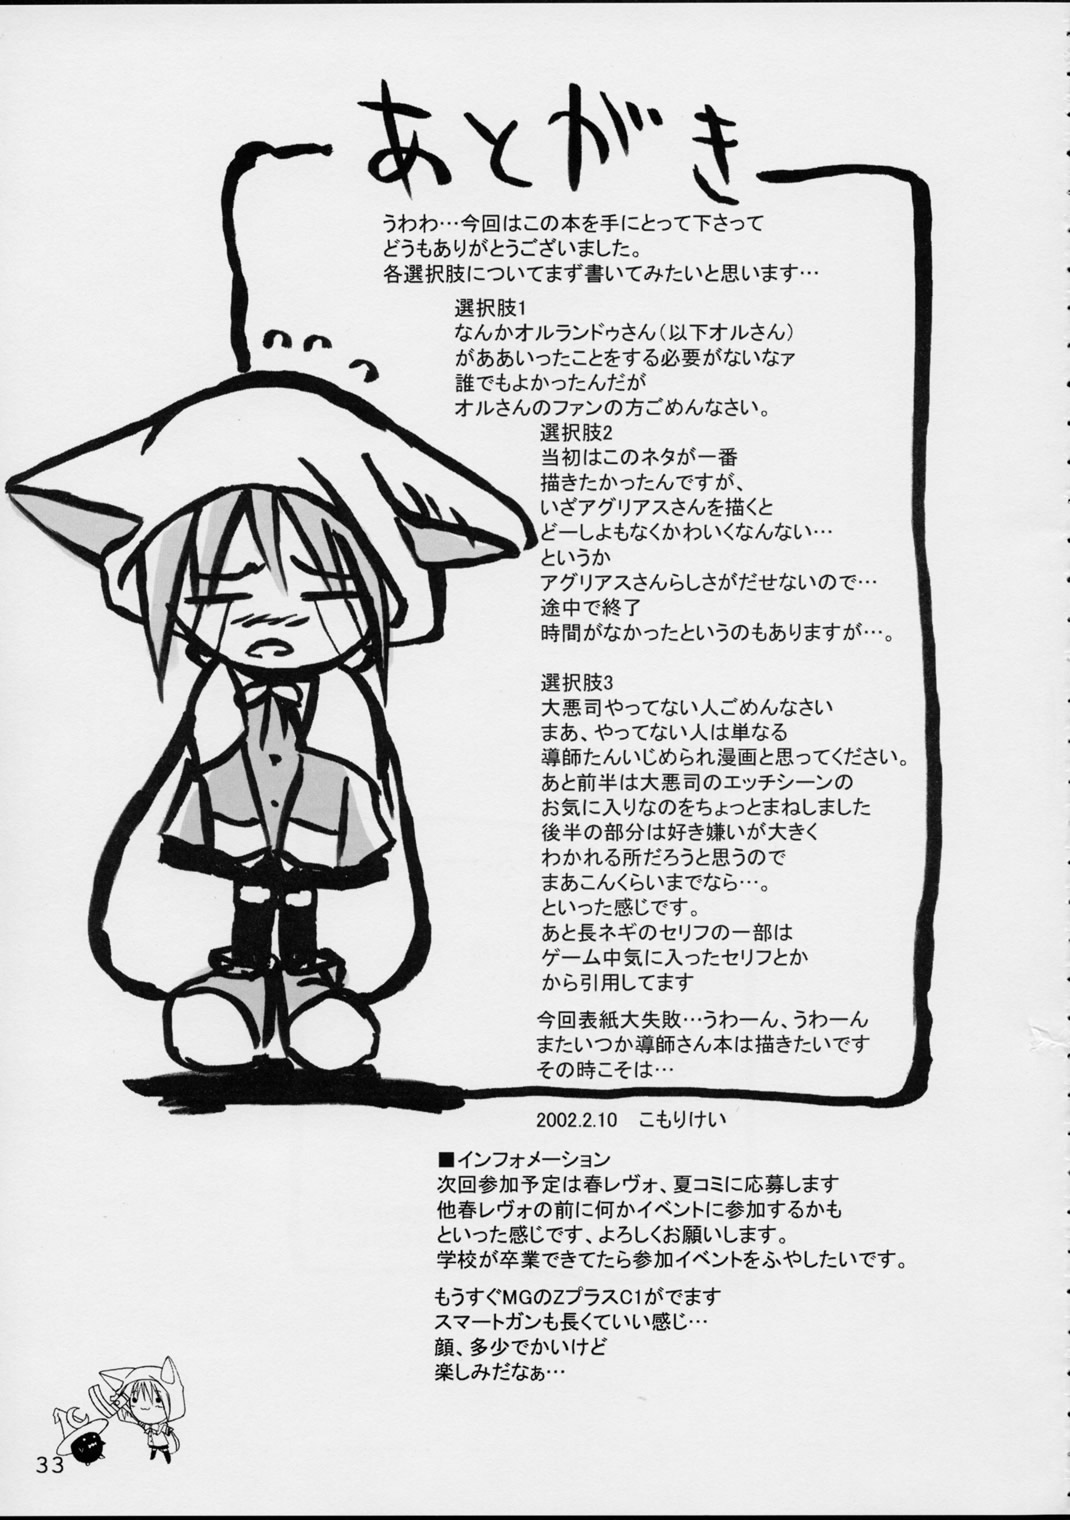 あとがき
うわわ…今回はこの本を手にとって下さって
どうもありがとうございました。
各選択肢についてまず書いてみたいと思います…
選択肢1
なんかオルランドゥさん（以下オルさん）
がああいったことをする必要がないなァ
誰でもよかったんだが
オルさんのファンの方ごめんなさい。
選択肢2
当初はこのネタが一番
描きたかったんですが、
いざアグリアスさんを描くと
どーしよもなくかわいくなんない…
というか
アグリアスさんらしさがだせないので…
途中で終了
時間がなかったというのもありますが…。
選択肢3
大悪司やってない人ごめんなさい
まあ、やってない人は単なる
導師たんいじめられ漫画と思ってください。
あと前半は大悪司のエッチシーンの
お気に入りなのをちょっとまねしました
後半の部分は好き嫌いが大きく
わかれる所だろうと思うので
まあこんくらいまでなら…。
といった感じです。
あと長ネギのセリフの一部は
ゲーム中気に入ったセリフとか
から引用してます
今回表紙大失敗…うわーん、うわーん
またいつか導師さん本は描きたいです
その時こそは…
2002.2.10　こもりけい
■インフォメーション
次回参加予定は春レヴォ、夏コミに応募します
他春レヴォの前に何かイベントに参加するかも
といった感じです、よろしくお願いします。
学校が卒業できてたら参加イベントをふやしたいです。
もうすぐMGのZプラスC1がでます
スマートガンも長くていい感じ…
顔、多少でかいけど
楽しみだなぁ…
33